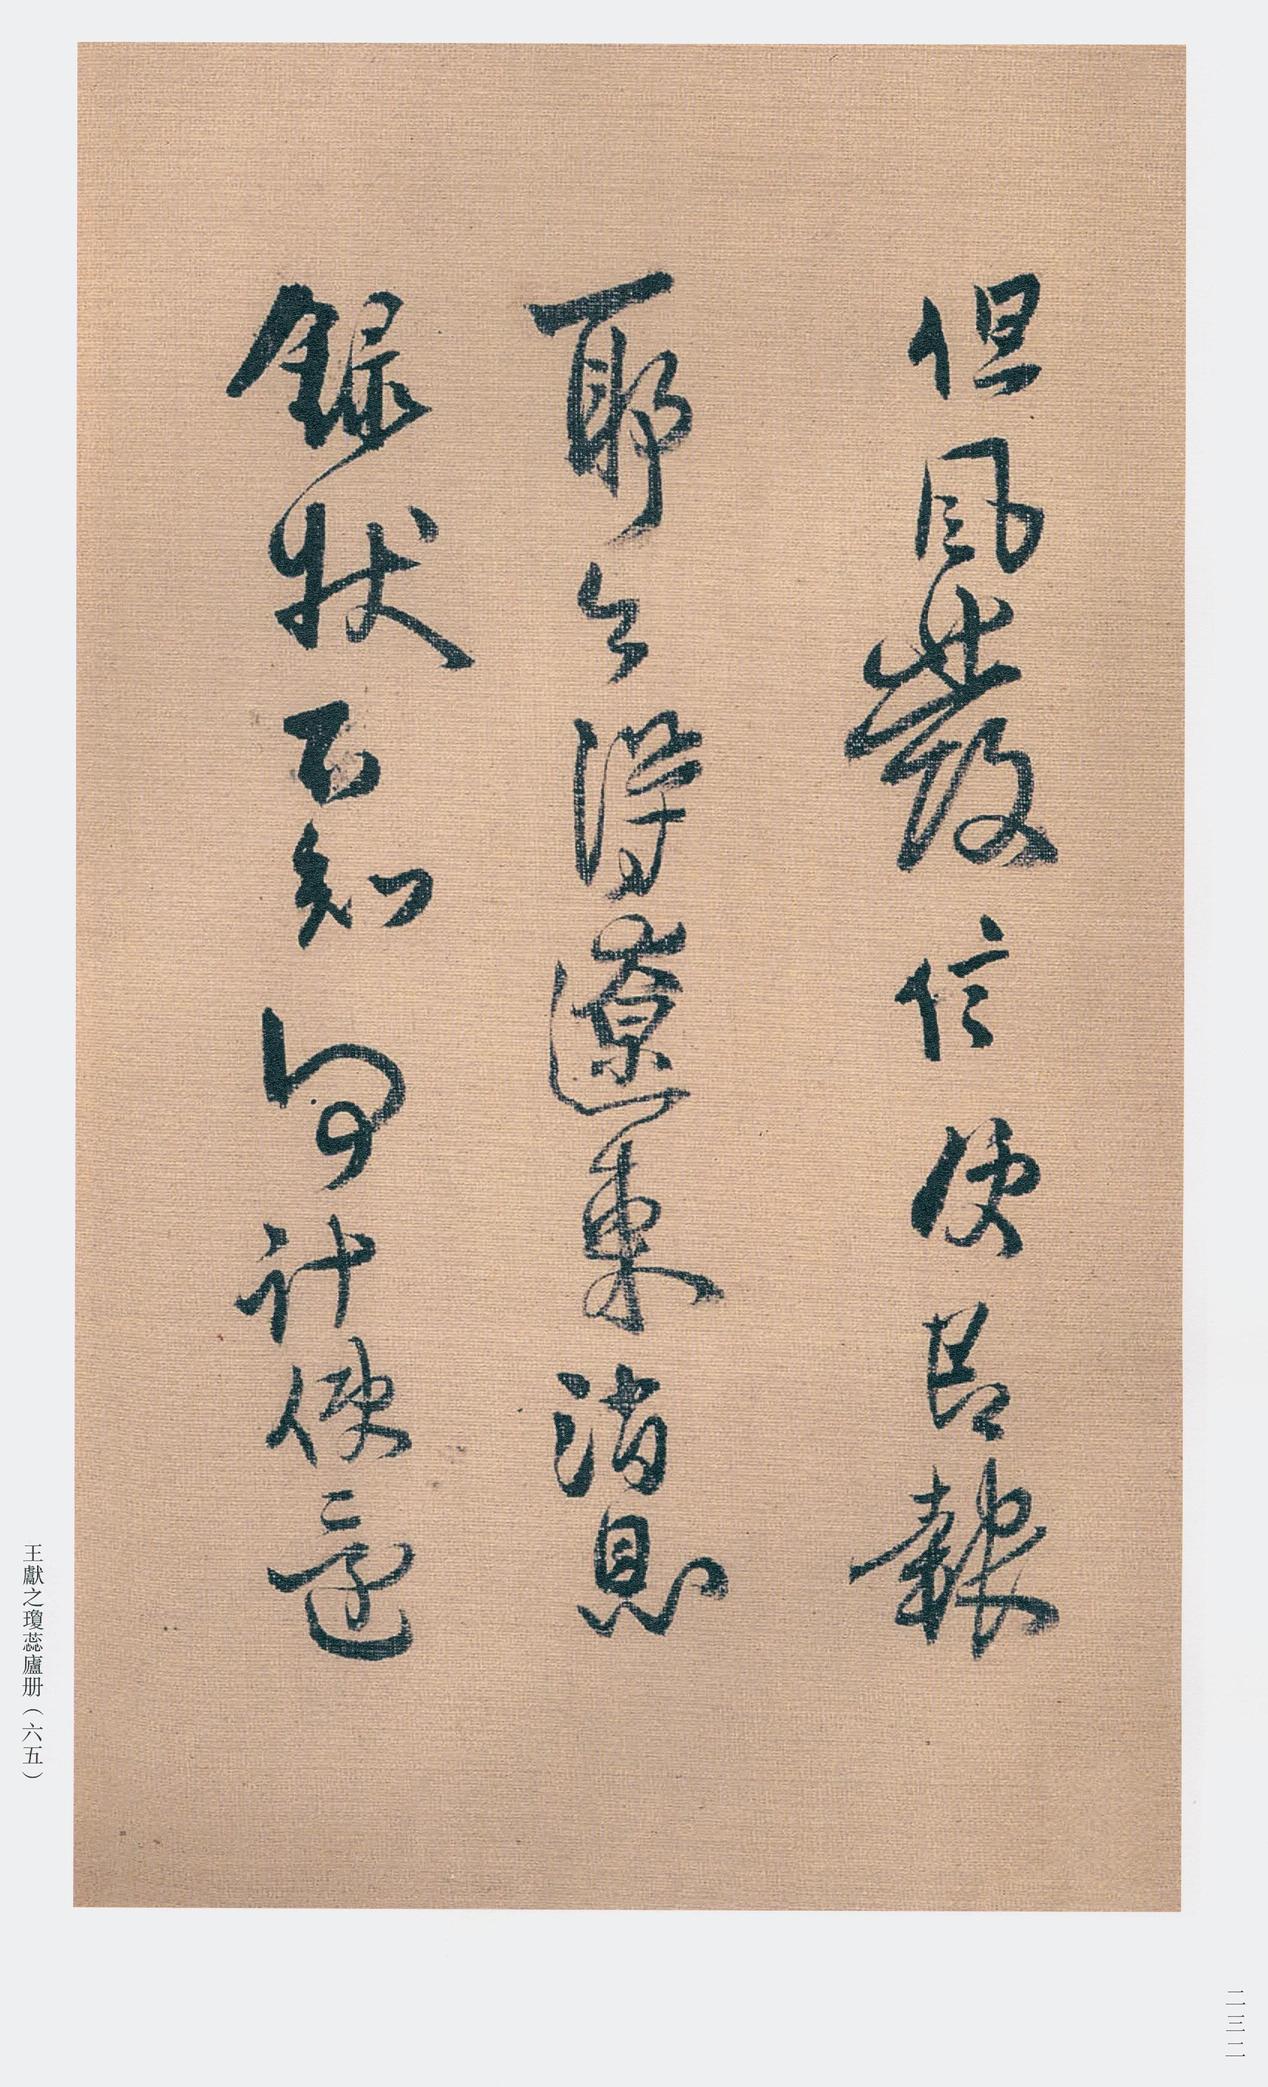 但風發信使呂報
耶今得遼東消息
錄狀不知何計使還
王獻之瓊蕊廬册（六五）
二三二